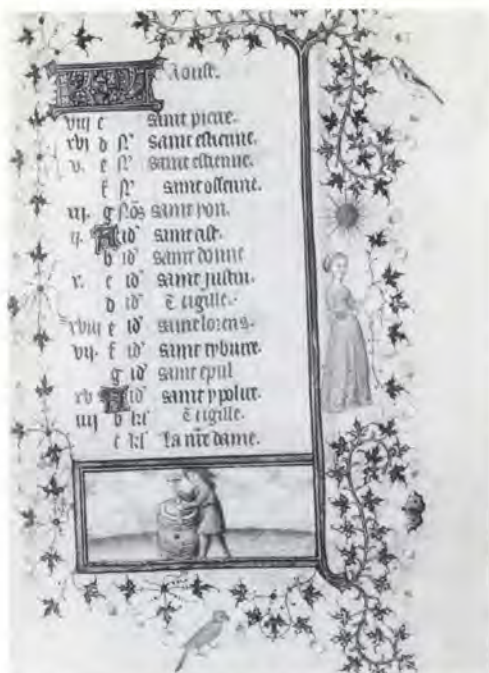 Aoust.
viij c saint pierre.
xvj d N' saint estienne.
v. e N' saint estienne.
f N' saint ossenne.
iij. g Nos saint yon.
ij. A id' saint
b id' saint donne
x. c id' saint justin.
d id' vigille.
xviij e id' saint lorens.
vij. f id' saint tyburce.
g id' saint
xv A id' saint ypolite.
iiij b kl' vigille.
c kl' La nre dame.